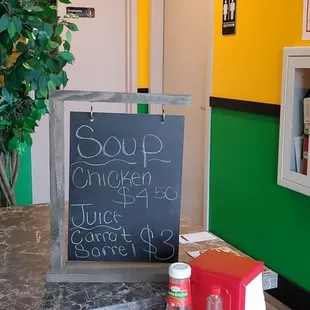 Soup
Chicken
$4.50
Juice
Carrot
Sorrel $3